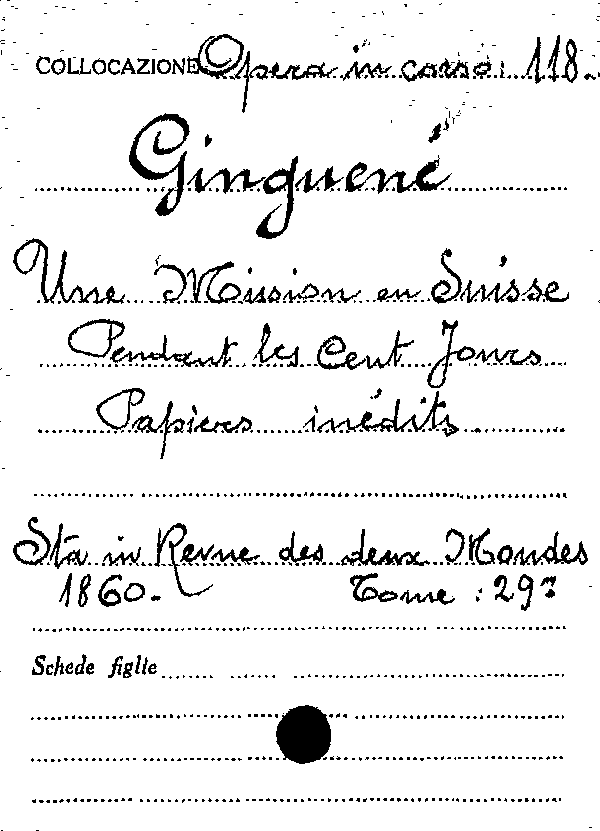 COLLOCAZIONE Opera in corso: 118.
Ginguené
Une Mission en Suisse
Pendant les Cent Jours
Papiers inédits.
Sta in Revue des deux Mondes
1860. Tome : 29?
Schede figlie